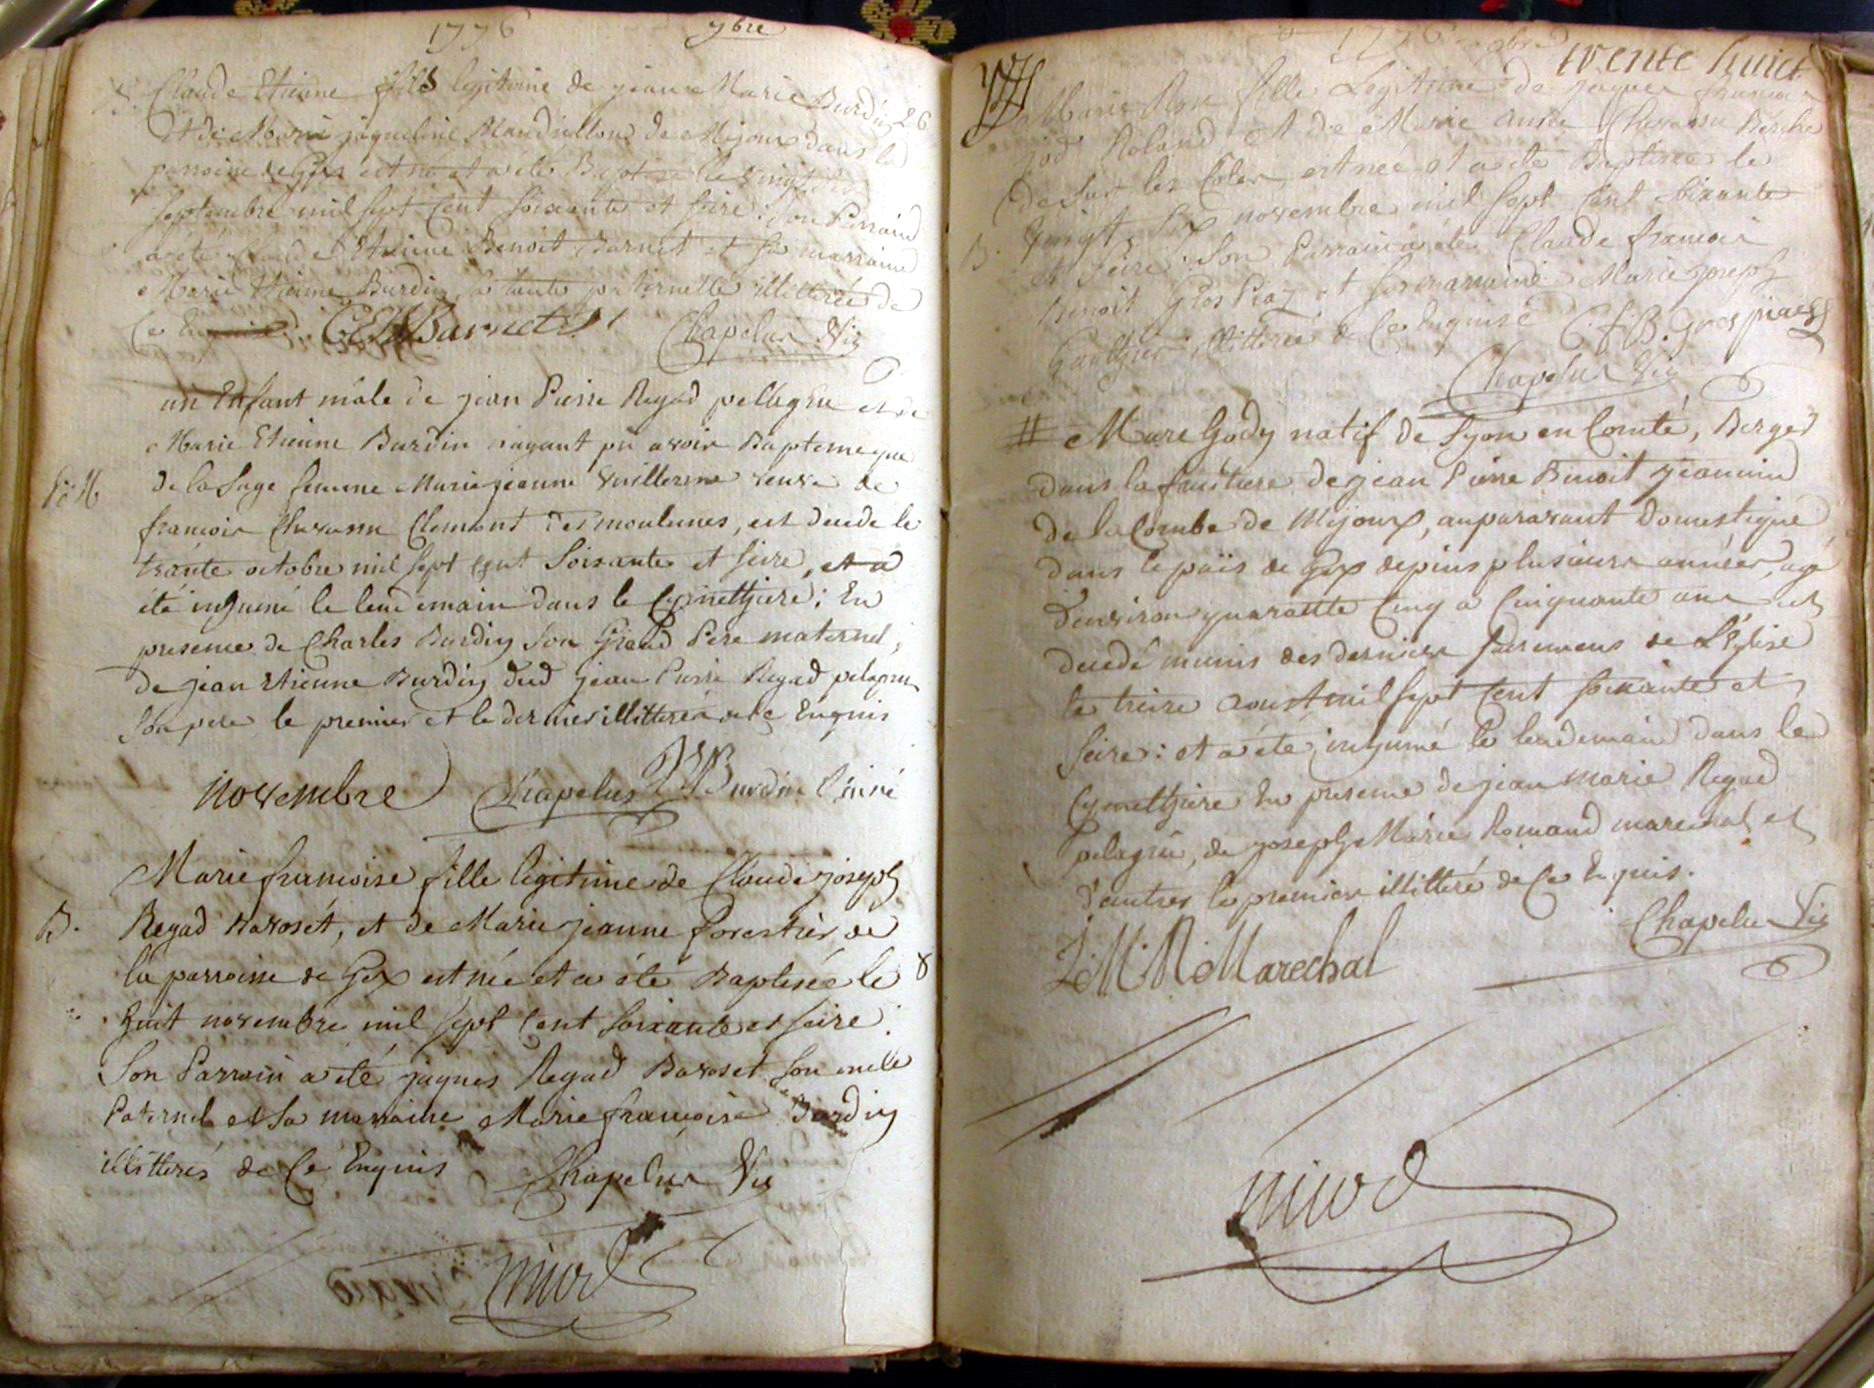 1776 7bre
B. Claude Etienne fils legitime de jean Marie Burdin 26
Et de Marie jaqueline Mandrillon de Mijoux dans la
parroisse de Gex est né et a été Baptisé le vingt six
septembre mil sept cent soixante et seize : son Parrain
a été Claude Etienne Benoit Barnet et sa marraine
Marie Etienne Burdin sa tante paternelle illitterée de
Ce Enquise. C E B Barnet Chapelus Vic
un Enfant mâle de jean Pierre Regad pellagru et de
Marie Etienne Burdin nayant pu avoir Bapteme que
de la sage femme Marie jeanne Vuillerme veuve de
francoir Chavassu Clement des moulunes, est decede le
trante octobre mil sept cent soixante et seize, et a
été inhumé le lendemain dans le Cymetthiere : En
presence de Charles Burdin son Grand Pere maternel,
de jean Etienne Burdin dud jean Pierre Regad pelagru
son pere le premier et le dernier illitterés de ce Enquis
novembre Chapelus Burdin l'ainé
Marie francoise fille legitime de Claude joseph
B. Regad Baroset, et de Marie jeanne forestier de
la parroisse de Gex est née et a été Baptisée le 8
huit novembre mil sept Cent soixante et seize :
Son Parrain a été jaques Regad Baroset son oncle
Paternel et sa marraine Marie francoise Burdin
illitterés de Ce Enquis Chapelus Vic
nivod
1776 9bre
trente huict
Marie Rose fille Legitime de jaques francoir
god Roland Et de Marie Aimée Chavassu Berche
de sur les Cotes est née et a été Baptisée le
vingt six novembre mil sept Cent soixante
B. et seize : Son Parrain a été Claude francoir
Benoit Gros Piaz et sa marraine Marie joseph
Gauthier illitterée de Ce Enquise C. f B. gros piaz
Chapelus Vic
# Marc Gody natif de Lyon en Comté, Berger
dans la fruitiere de jean Pierre Benoit jeannin
de la Combe de Mijoux, auparavant Domestique
dans le païs de Gex depuis plusieurs années, agé
d'environ quarante Cinq a Cinquante ans est
decedé munis des derniers sacremens de L'Eglise
le treize aoust mil sept Cent soixante et
seize : et a été inhumé le lendemain dans le
Cymetthiere En presence de jean marie Regad
pelagru, de joseph Marie Romand marechal et
d'autres le premier illitteré de Ce Enquis.
Chapelus Vic
J. M. R. Marechal
nivod